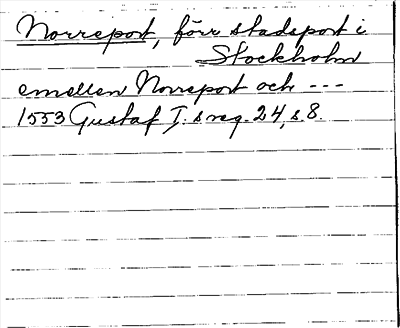 Norreport, förr stadsport i
Stockholm
emellan Norreport och ---
1553 Gustaf I:s reg. 24, s. 8.